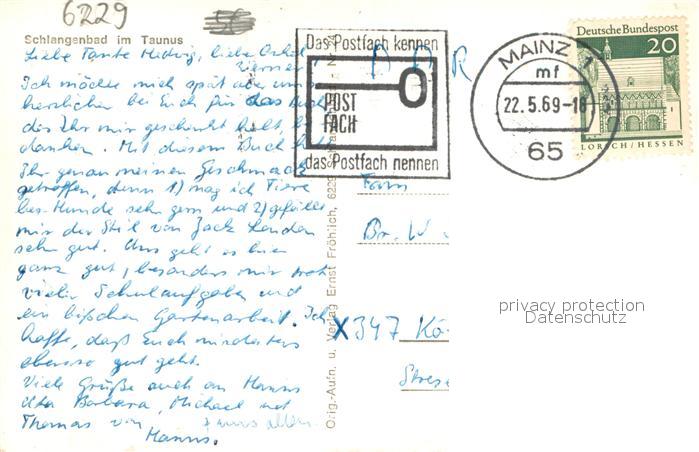 6229
56
Schlangenbad im Taunus
Liebe Tante Hedwig, lieber Onkel
Ich möchte mich spät aber um
herzlicher bei Euch für das Buch
das Ihr mir geschenkt habt, be
danken. Mit diesem Buch habt
Ihr genau meinen Geschmack
getroffen, denn 1) mag ich Tiere
bes. Hunde sehr gern und 2) gefällt
mir der Stil von Jack London
sehr gut. Uns geht es hier
ganz gut, besonders mir trotz
vieler Schulaufgaben und
ein bißchen Gartenarbeit. Ich
hoffe, daß Euch mindestens
ebenso gut geht.
Viele Grüße auch an Hanns
Barbara, Michael und
Thomas von
Hanns.
Orig.-Aufn. u. Verlag Ernst Fröhlich, 6229
Das Postfach kennen
POST
FACH
das Postfach nennen
MAINZ 1
mf
22.5.69-18
65
Deutsche Bundespost
20
LORSCH/HESSEN
Fam
Br. W
X347 Kö
Strese
privacy protection
Datenschutz